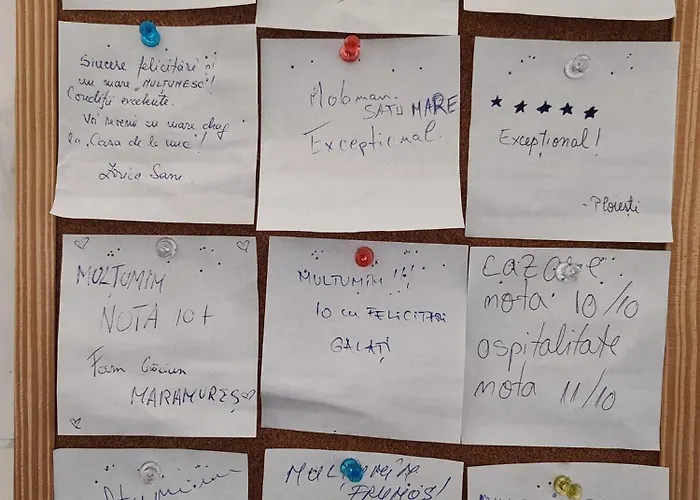 Sincere felicitări și
un mare „MULȚUMESC"!
Condiții excelente.
Voi reveni cu mare drag
la „Casa de la
SATU MARE
Excepțional.
★ ★ ★ ★ ★
Excepțional!
- Ploiești
MULȚUMIM
NOTA 10+
Fam
MARAMUREȘ
MULȚUMIM !!!
10 cu FELICITĂRI
GALAȚI
CAZARE
nota 10/10
ospitalitate
nota 11/10
FRUMOS!